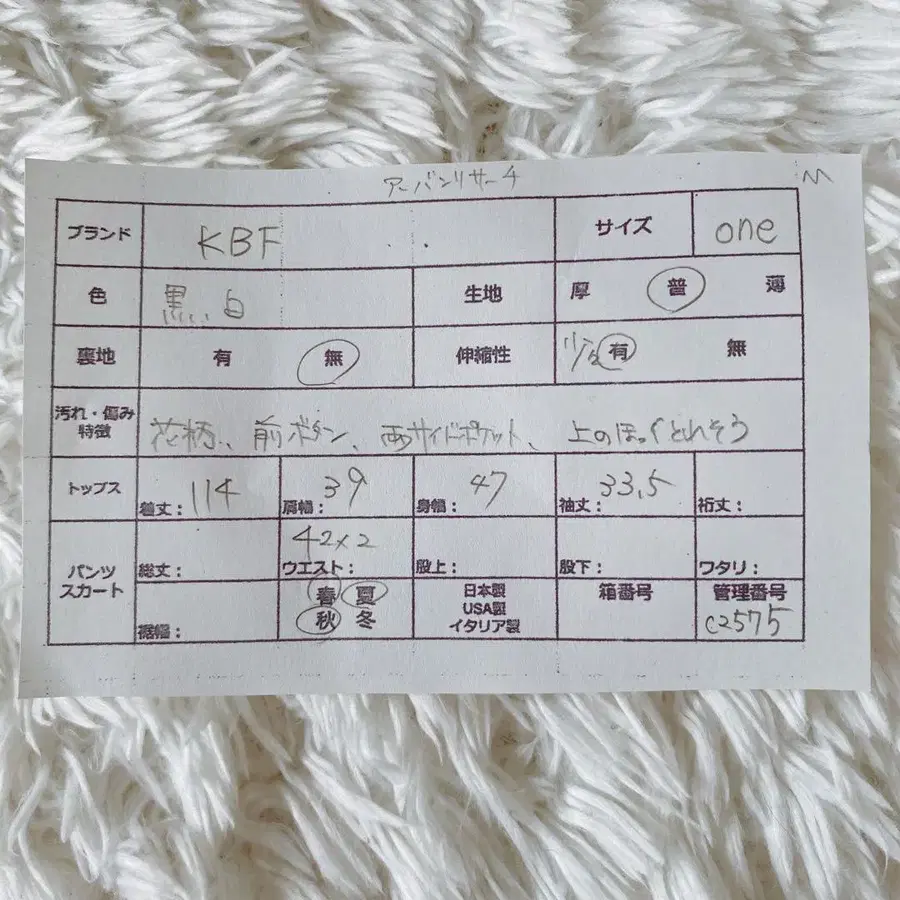 アーバンリサーチ M
ブランド KBF サイズ one
色 黒、白 生地 厚 普 薄
裏地 有 無 伸縮性 少々 有 無
汚れ・傷み
特徴 花柄、前ボタン、両サイドポケット、上のほっくとれそう
トップス 着丈: 114 肩幅: 39 身幅: 47 袖丈: 33.5 裄丈:
パンツ
スカート 総丈: ウエスト: 42×2 股上: 股下: ワタリ:
裾幅: 春 夏
秋 冬
日本製
USA製
イタリア製
箱番号
管理番号
c2575